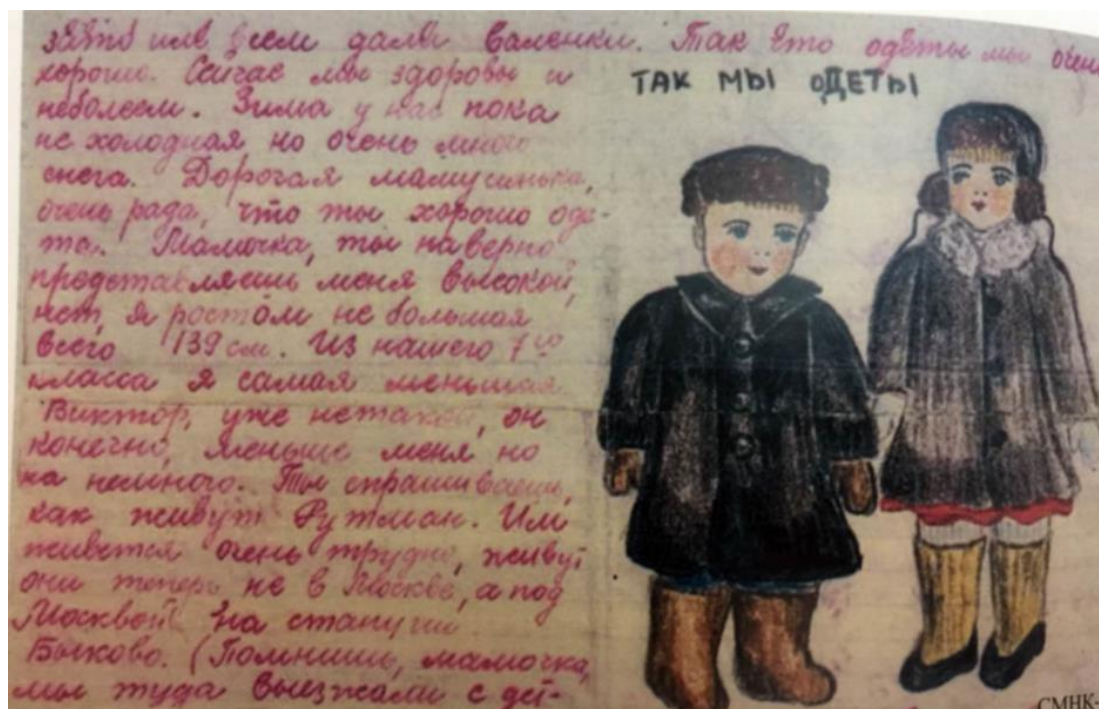 всем дали валенки. Так что одеты мы очень
хорошо. Сейчас мы здоровы и
неболеем. Зима у нас пока
не холодная но очень много
снега. Дорогая мамусинька,
очень рада, что ты хорошо оде-
та. Мамочка, ты наверно
представляешь меня высокой,
нет, я ростом не большая
всего 139 см. Из нашего 7го
класса я самая меньшая.
Виктор, уже не такой, он
конечно, меньше меня но
на немного. Ты спрашиваешь,
как живут Рутман. Им
живется очень трудно, живут
они теперь не в Москве, а под
Москвой на станции
Быково. (Помнишь, мамочка,
мы туда выезжали с дет-
ТАК МЫ ОДЕТЫ
СМНК-